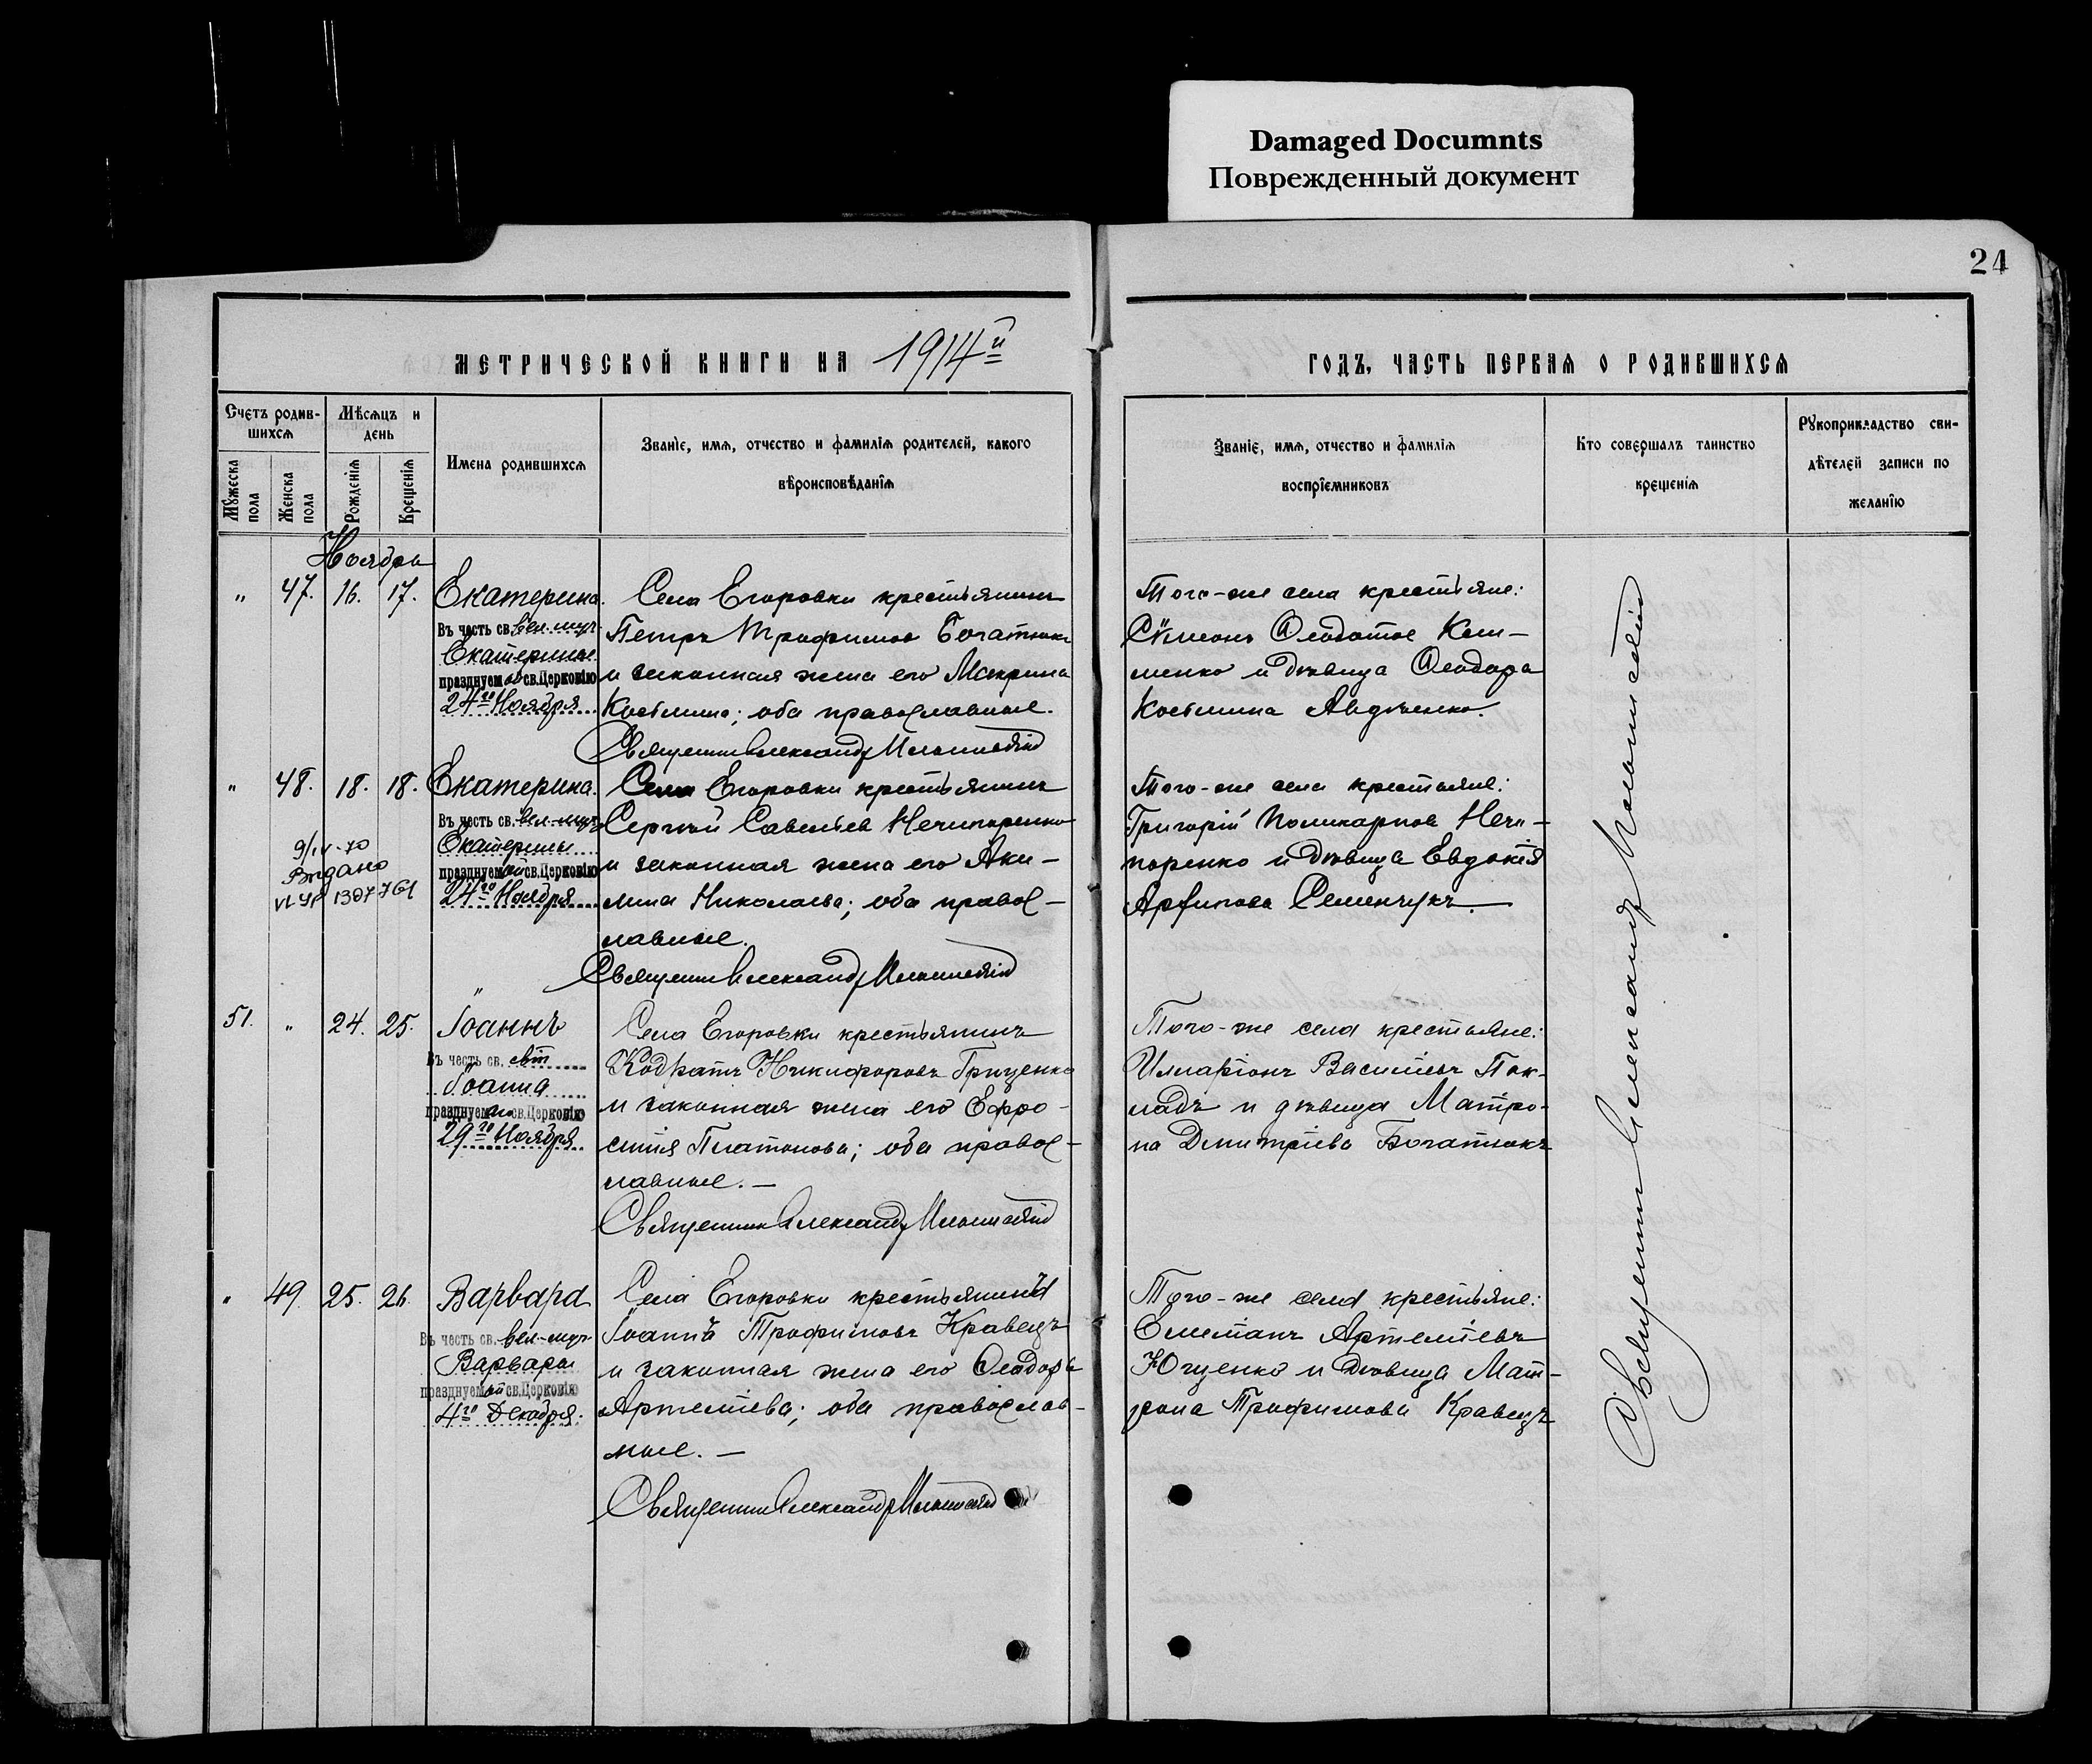 Damaged Documnts
Поврежденный документ
24
МЕТРИЧЕСКОЙ КНИГИ НА 1914й
ГОДЪ, ЧАСТЬ ПЕРВАЯ О РОДИВШИХСЯ
Счетъ родив-
шихся
Мѣсяцъ и
день
Имена родившихся
Званіе, имя, отчество и фамилія родителей, какого
вѣроисповѣданія
Мужеска пола
Женска пола
Рожденія
Крещенія
Званіе, имя, отчество и фамилія
воспріемниковъ
Кто совершалъ таинство
крещенія
Рукоприкладство сви-
дѣтелей записи по
желанію
Ноябрь
" 47. 16. 17. Екатерина.
Въ честь св. вел.-муч.
Екатерины
празднуем ой св.Церковію
24го Ноября
Села Егоровки крестьянинъ
Петръ Трофимовъ Богатюкъ
и законная жена его Макрина
Косьмина; оба православные.
Священникъ Александръ
Того-же села крестьяне:
Сѵмеонъ Ѳеодотов
и дѣвица Ѳеодора
Косьмина Авдѣенко.
" 48. 18. 18. Екатерина.
Въ честь св. вел.-муч.
Екатерины
празднуем ой св.Церковію
24го Ноября
9/IV-70
Выдано
1307761
Села Егоровки крестьянинъ
Сергѣй Савельев Нечипоренко
и законная жена его Аки-
лина Николаева; оба правос-
лавные.
Священникъ Александръ
Того-же села крестьяне:
Григорій Поликарпов Нечи-
поренко и дѣвица Евдокія
Архипова Семенчукъ.
51. " 24. 25. Іоаннъ
Въ честь св. свт
Іоанна
празднуем аго св.Церковію
29го Ноября
Села Егоровки крестьянинъ
Кодратъ Никифоровъ Гриценко
и законная жена его Ефро-
синія Платонова; оба правос-
лавные. —
Священникъ Александръ
Того-же села крестьяне:
Иларіонъ Васильевъ Пок-
ладъ и дѣвица Матро-
на Димитріева Богатюкъ
" 49. 25. 26. Варвара
Въ честь св. вел-муч
Варвары
празднуем ой св.Церковію
4го Декабря.
Села Егоровки крестьянинъ
Іоаннъ Трофимовъ Кравецъ
и законная жена его Ѳеодора
Артеміева; оба православ-
ные. —
Священникъ Александръ
Того-же села крестьяне:
Емеліанъ Артеміевъ
Ющенко и дѣвица Мат-
рона Трофимова Кравецъ
Священникъ Александръ